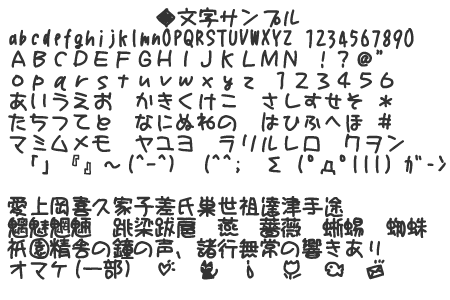 ◆文字サンプル
abcdefghijklmnOPQRSTUVWXYZ 1234567890
ABCDEFGHIJKLMN !?@"
opqrstuvwxyz 123456
あいうえお かきくけこ さしすせそ *
たちつてと なにぬねの はひふへほ #
マミムメモ ヤユヨ ラリルレロ クヲン
「」『』～(^-^) (^^; Σ(ﾟдﾟlll) ガーン
愛上岡喜久家子差氏巣世祖達津手途
魑魅魍魎 跳梁跋扈 燕 薔薇 蜥蜴 蜘蛛
祇園精舎の鐘の声、諸行無常の響きあり
オマケ(一部)